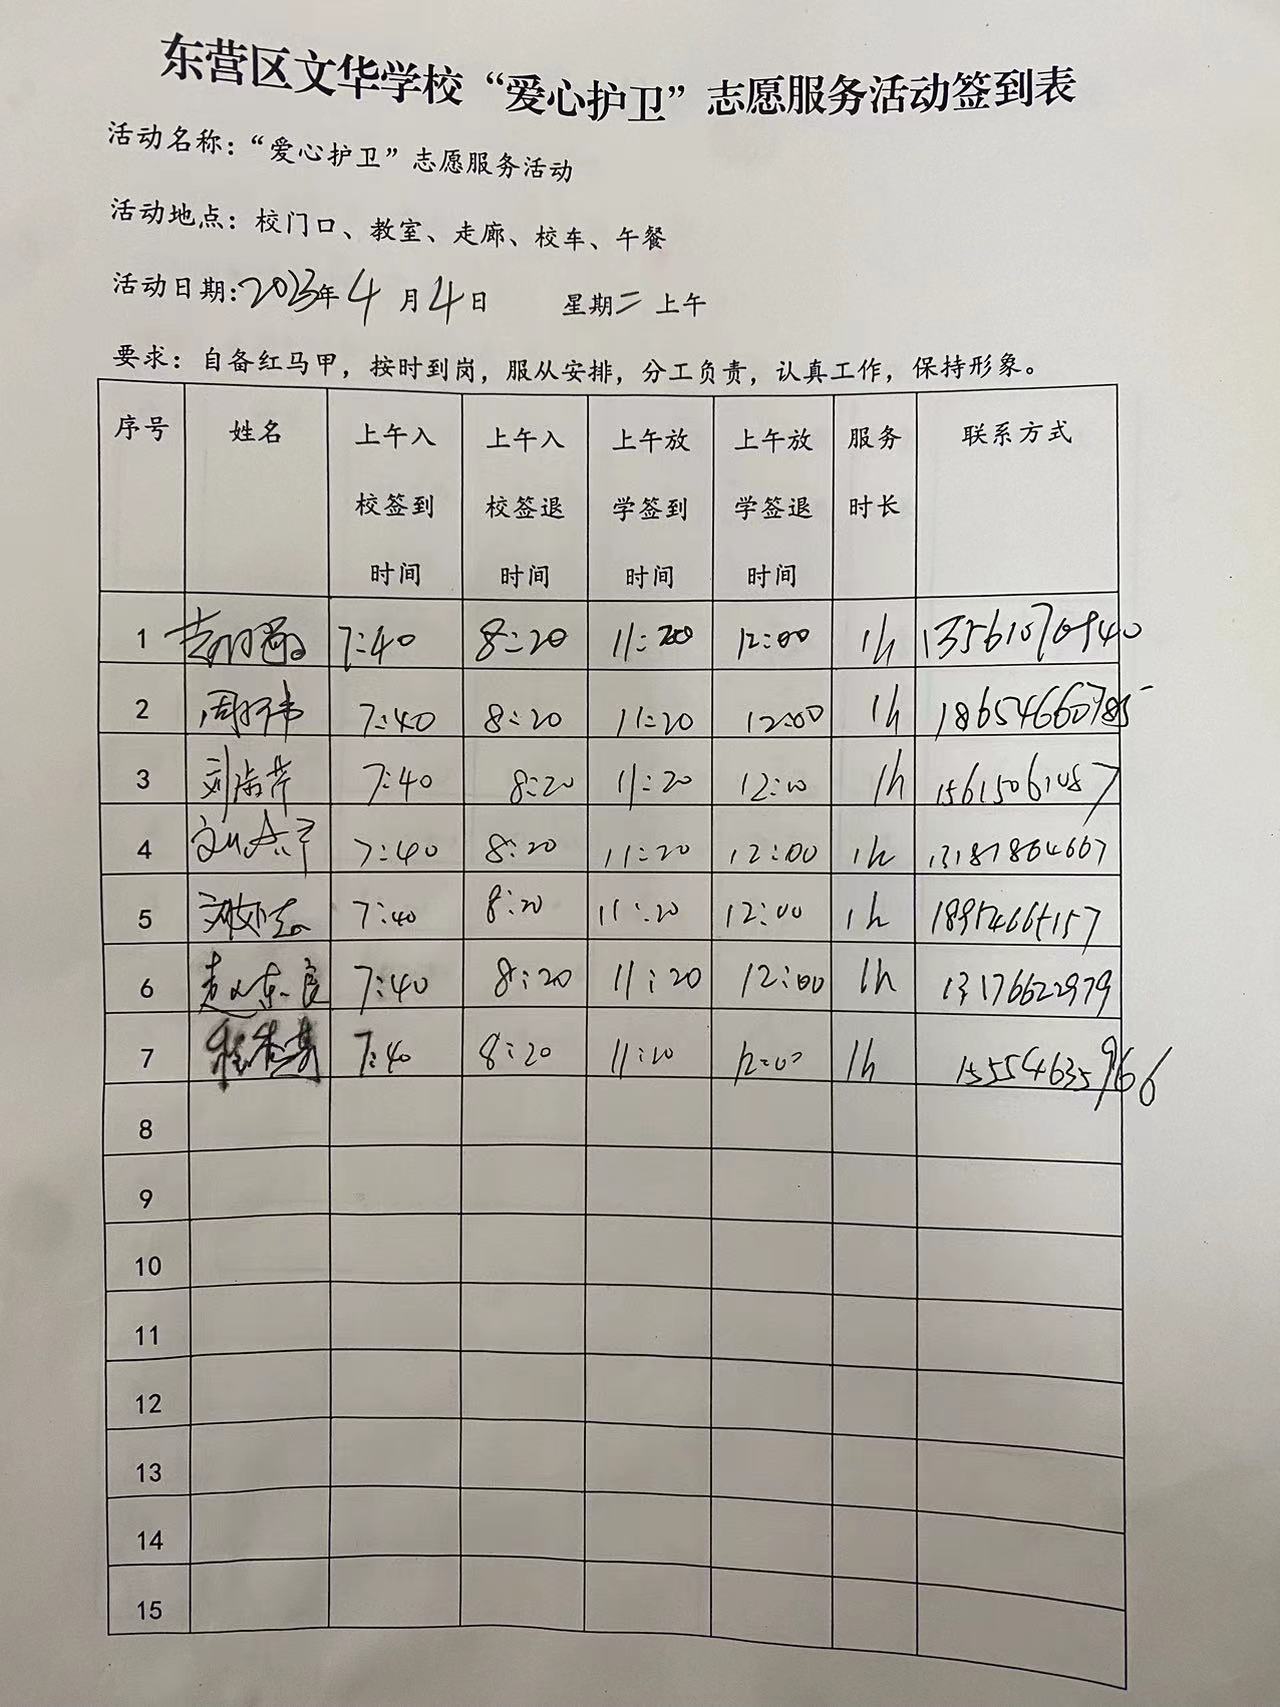 东营区文华学校“爱心护卫”志愿服务活动签到表
活动名称：“爱心护卫”志愿服务活动
活动地点：校门口、教室、走廊、校车、午餐
活动日期:2023年4月4日 星期二上午
要求：自备红马甲，按时到岗，服从安排，分工负责，认真工作，保持形象。
序号 姓名 上午入校签到时间 上午入校签退时间 上午放学签到时间 上午放学签退时间 服务时长 联系方式
1 7:40 8:20 11:20 12:00 1h
2 7:40 8:20 11:20 12:00 1h
3 7:40 8:20 11:20 12:00 1h 15615061087
4 7:40 8:20 11:20 12:00 1h 13181864667
5 7:40 8:20 11:20 12:00 1h
6 7:40 8:20 11:20 12:00 1h 13176622979
7 7:40 8:20 11:20 12:00 1h 15554635966
8
9
10
11
12
13
14
15